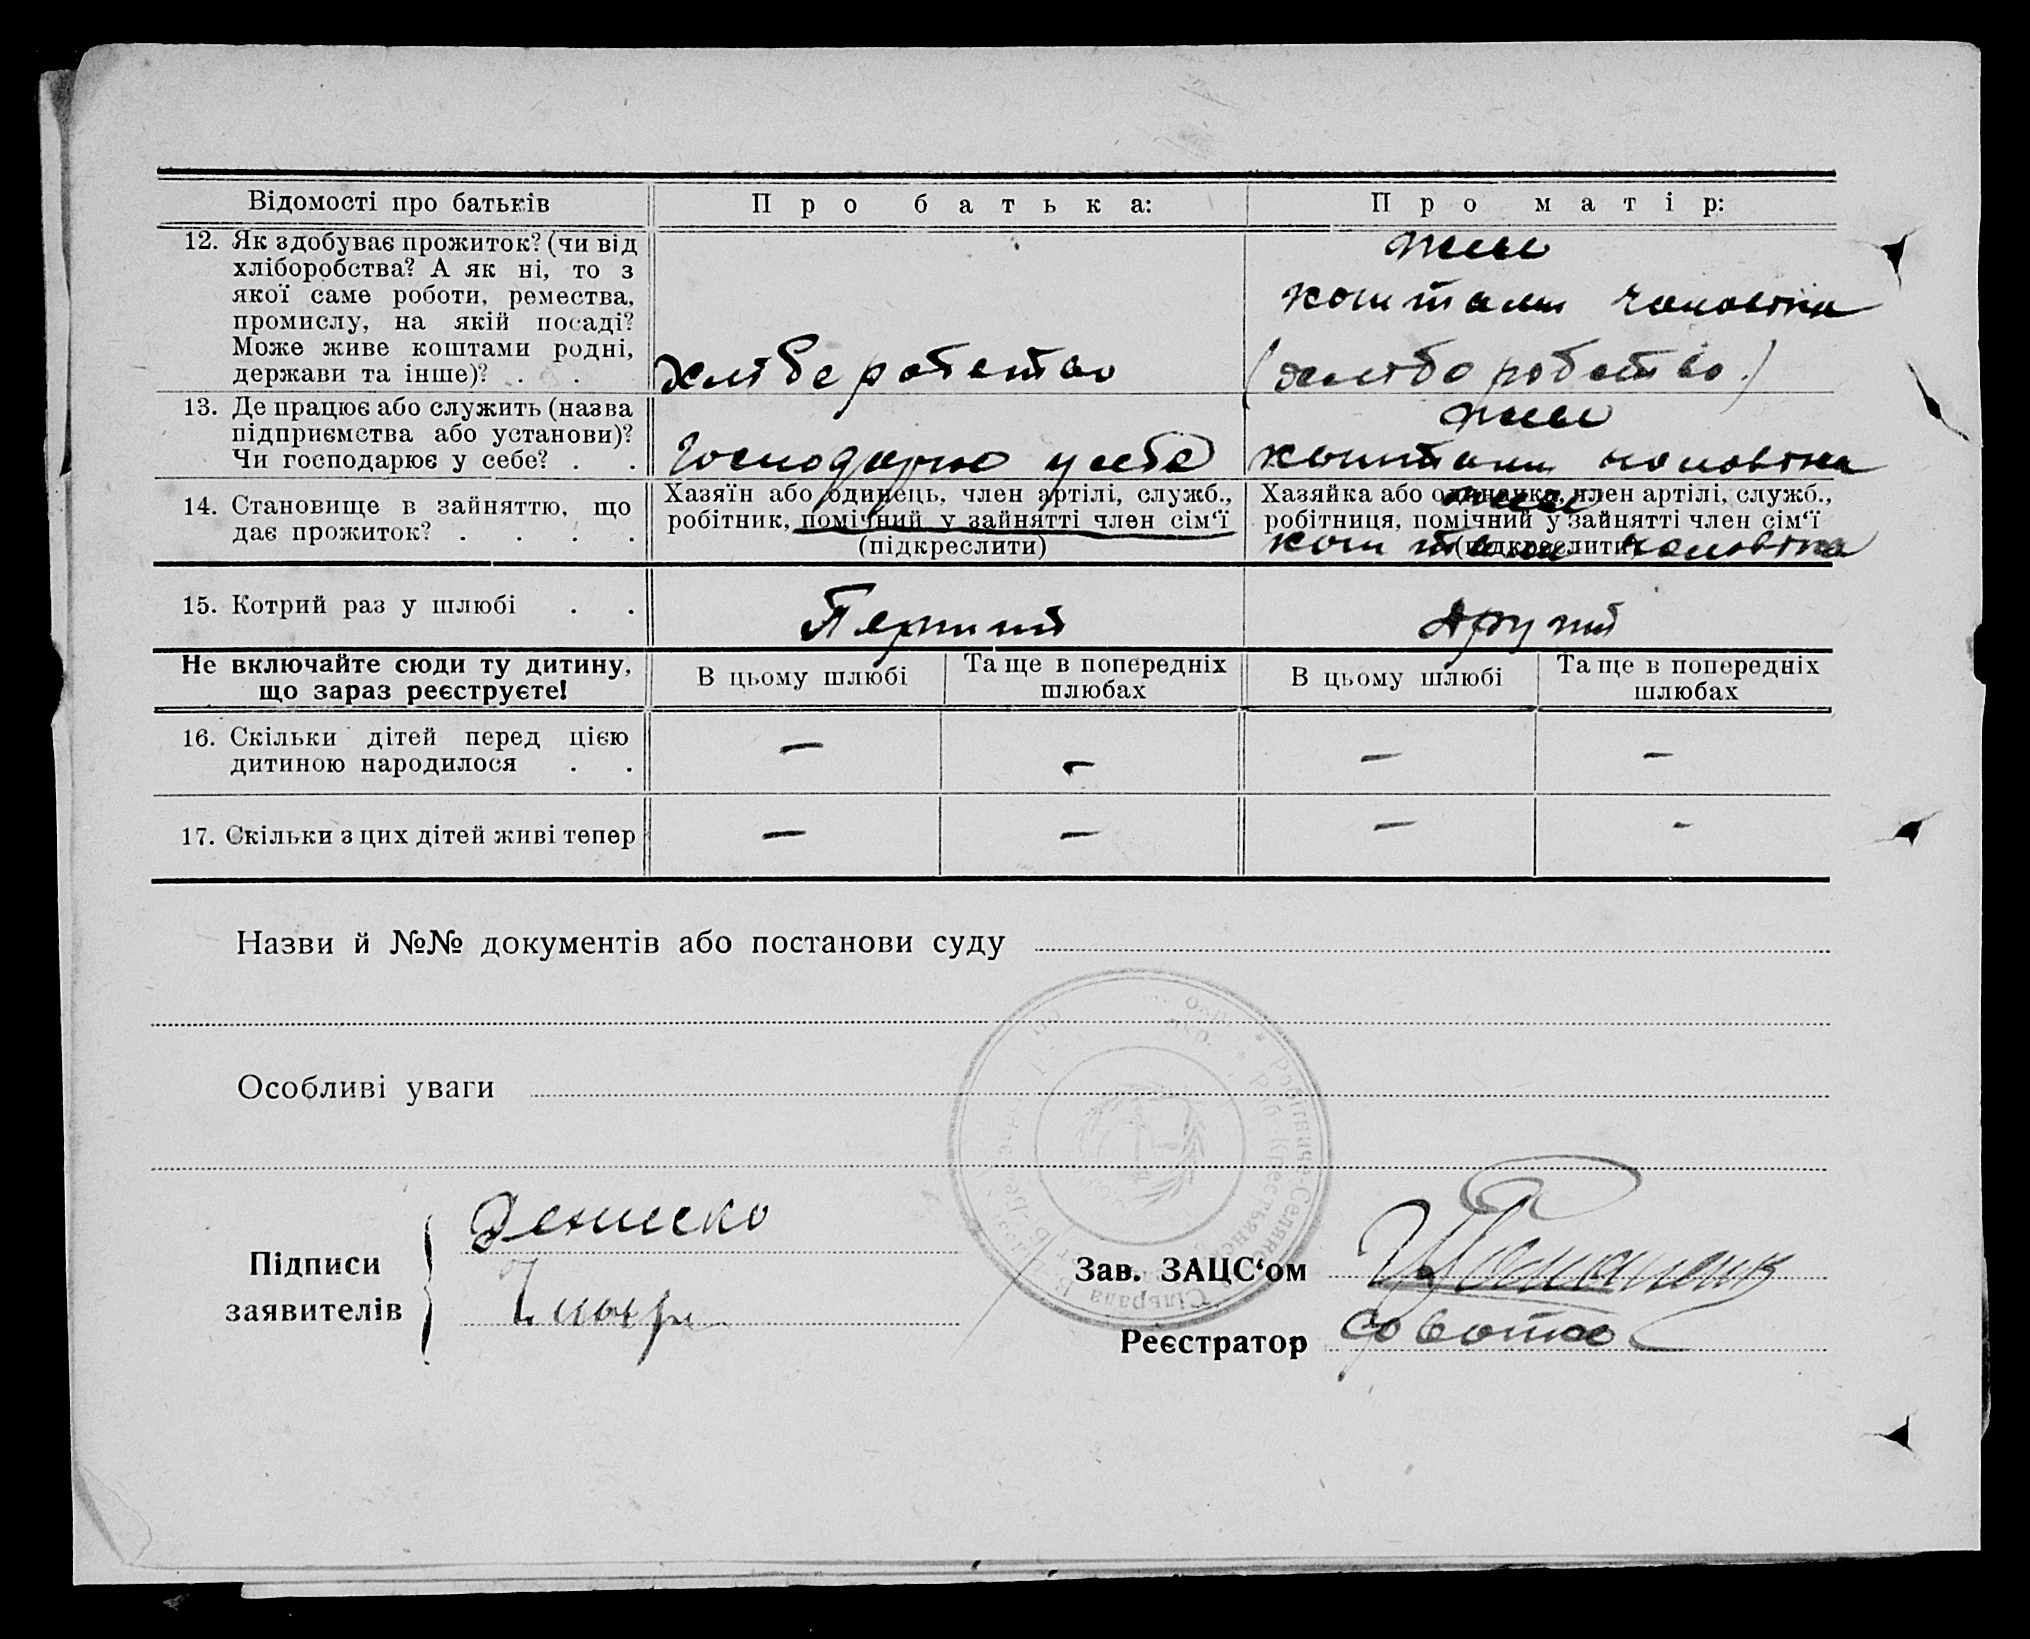 Відомості про батьків
Про батька:
Про матір:
12. Як здобуває прожиток? (чи від
хліборобства? А як ні, то з
якої саме роботи, ремества,
промислу, на якій посаді?
Може живе коштами родні,
держави та інше)? . .
хліборобство
живе
коштами чоловіка
(хлібо робство.)
13. Де працює або служить (назва
підприємства або установи)?
Чи господарює у себе? . .
Господарює у себе
живе
коштами чоловіка
14. Становище в зайняттю, що
дає прожиток? . . . .
Хазяїн або одинець, член артілі, служб.,
робітник, помічний у зайнятті член сім'ї
(підкреслити)
Хазяйка або одиначка, член артілі, служб.,
робітниця, помічний у зайнятті член сім'ї
(підкреслити)
живе
коштами чоловіка
15. Котрий раз у шлюбі . .
Перший
другий
Не включайте сюди ту дитину,
що зараз реєструєте!
В цьому шлюбі
Та ще в попередніх
шлюбах
В цьому шлюбі
Та ще в попередніх
шлюбах
16. Скільки дітей перед цією
дитиною народилося . .
— — — —
17. Скільки з цих дітей живі тепер
— — — -
Назви й №№ документів або постанови суду
Особливі уваги
Підписи
заявителів
Дениско
Зав. ЗАЦС'ом
Реєстратор
Робітниче-Селянськ
Сільрада